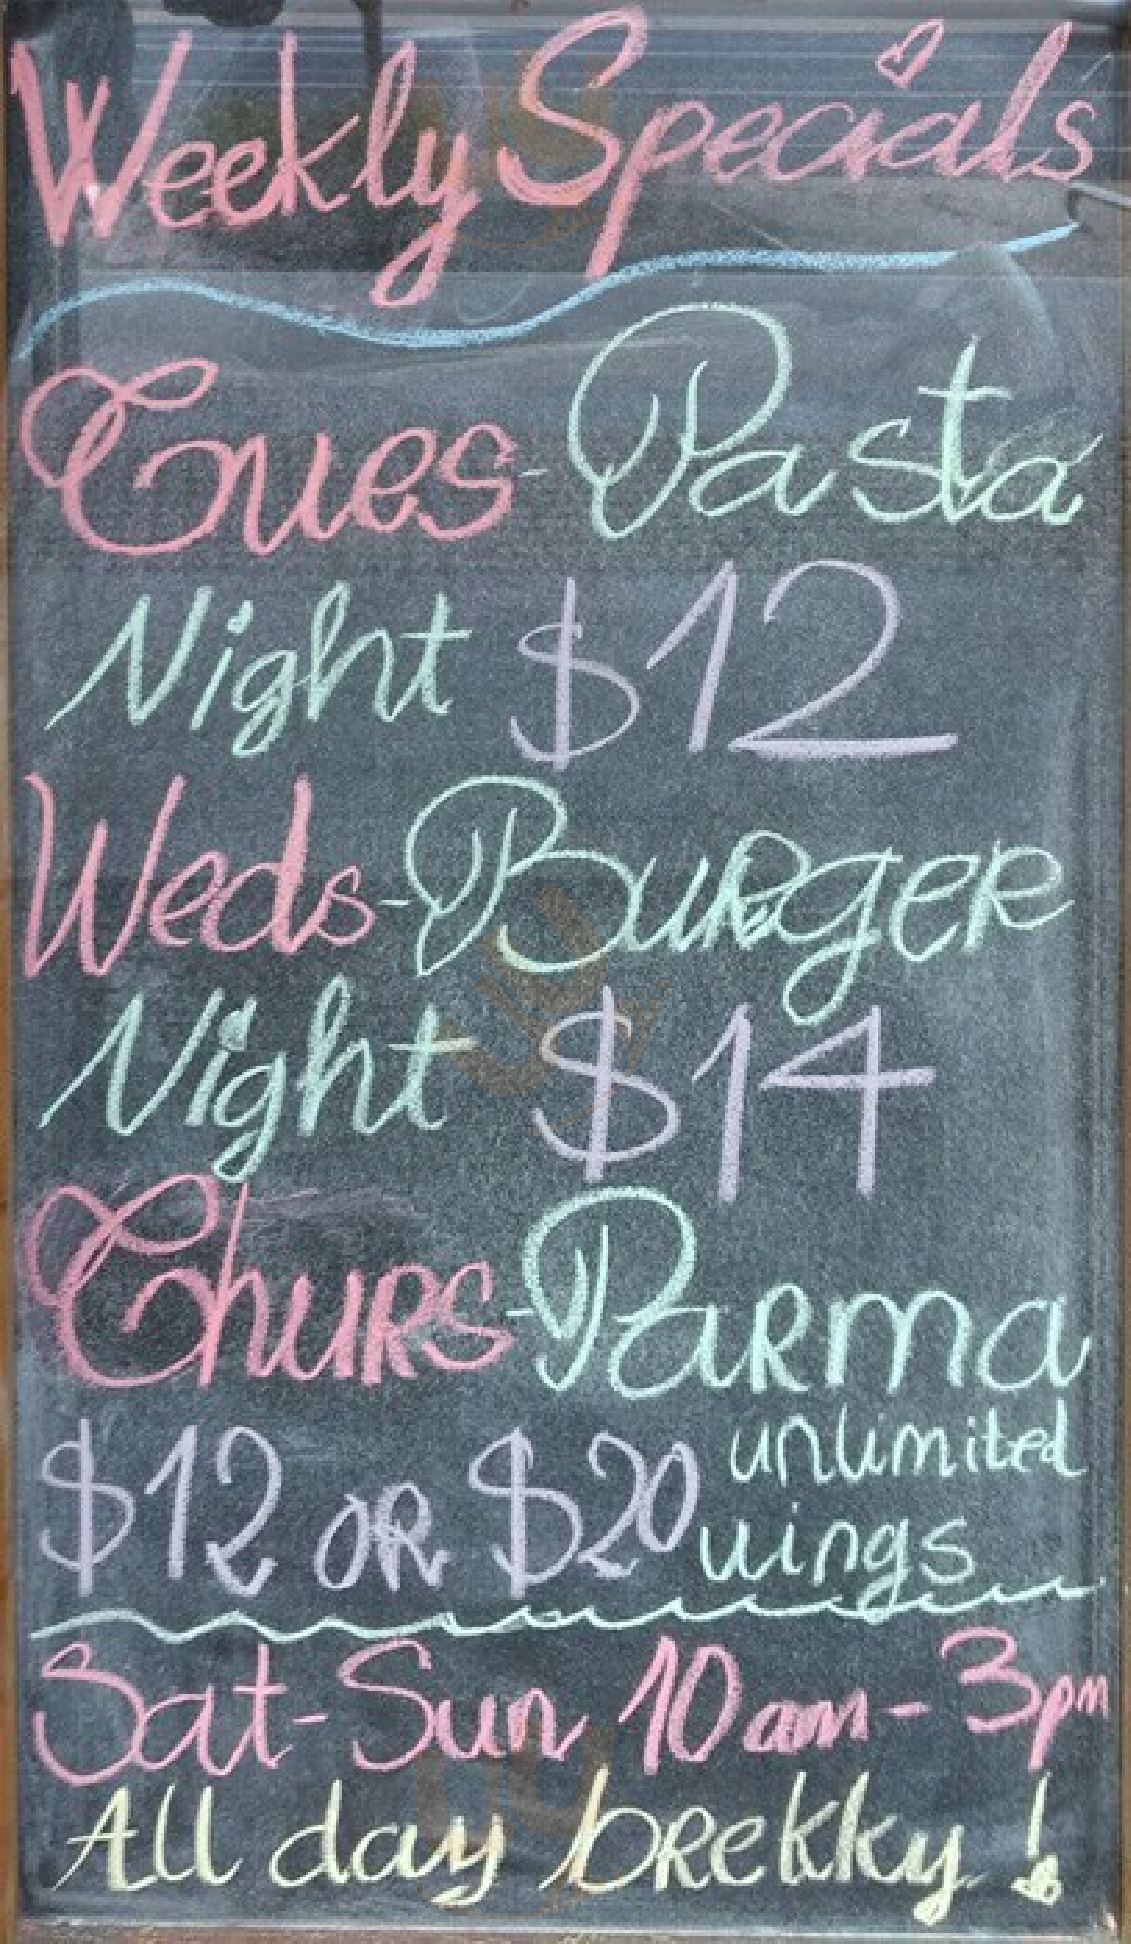 Weekly Specials
Tues - Pasta
Night $12
Weds - Burger
Night $14
Thurs - Parma
$12 or $20 unlimited
wings
Sat - Sun 10am - 3pm
All day brekky!